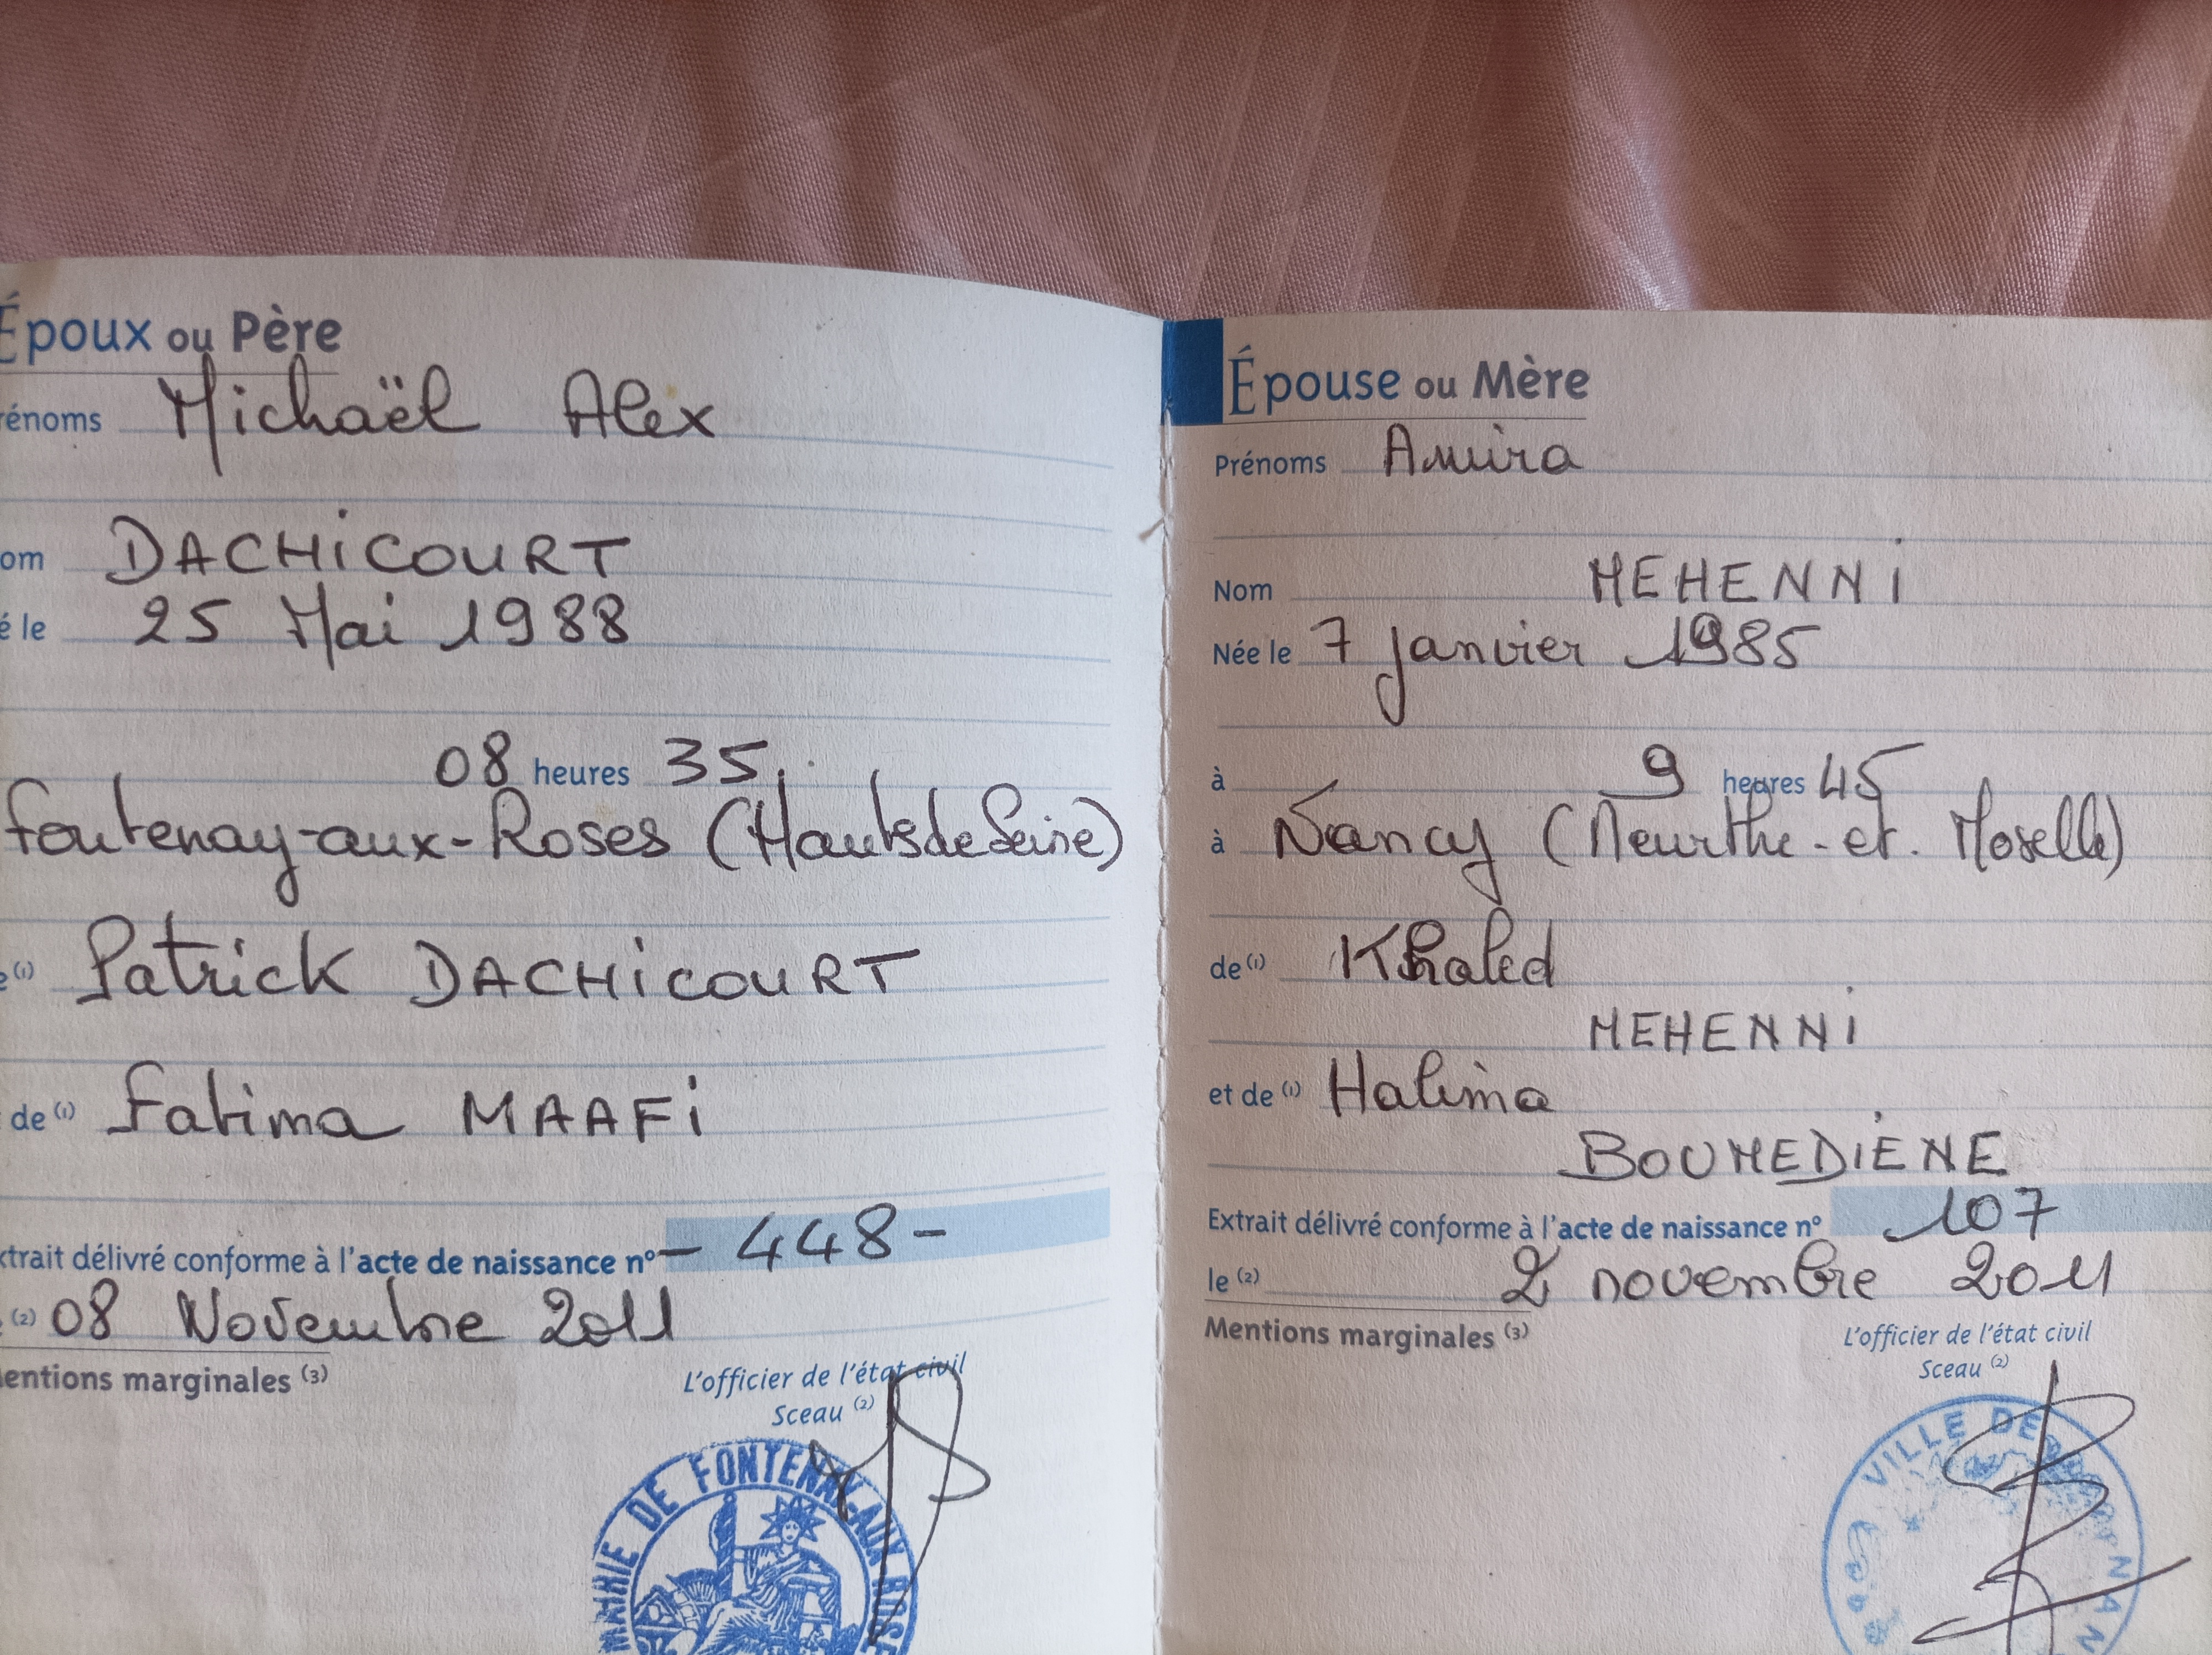 Époux ou Père
rénoms Michaël Alex
om DACHiCOURT
é le 25 Mai 1988
08 heures 35
Fontenay-aux-Roses (Hauts de Seine)
e (1) Patrick DACHiCOURT
de (1) Fatima MAAFi
xtrait délivré conforme à l'acte de naissance n° - 448 -
(2) 08 Novembre 2011
entions marginales (3)
L'officier de l'état civil
Sceau (2)
MAIRIE DE FONTENAY-AUX-ROSE
Épouse ou Mère
Prénoms Amira
Nom MEHENNi
Née le 7 janvier 1985
à 9 heures 45
à Nancy (Meurthe-et-Moselle)
de (1) Khaled
MEHENNi
et de (1) Halima
BOUMEDiENE
Extrait délivré conforme à l'acte de naissance n° 107
le (2) 2 novembre 2011
Mentions marginales (3)
L'officier de l'état civil
Sceau (2)
VILLE DE NAN